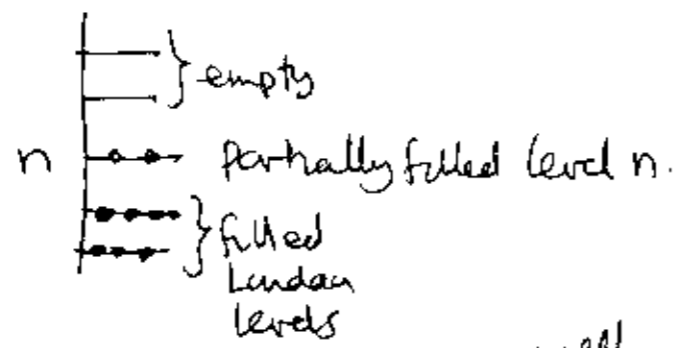 empty
n partially filled level n.
filled
Landau
levels